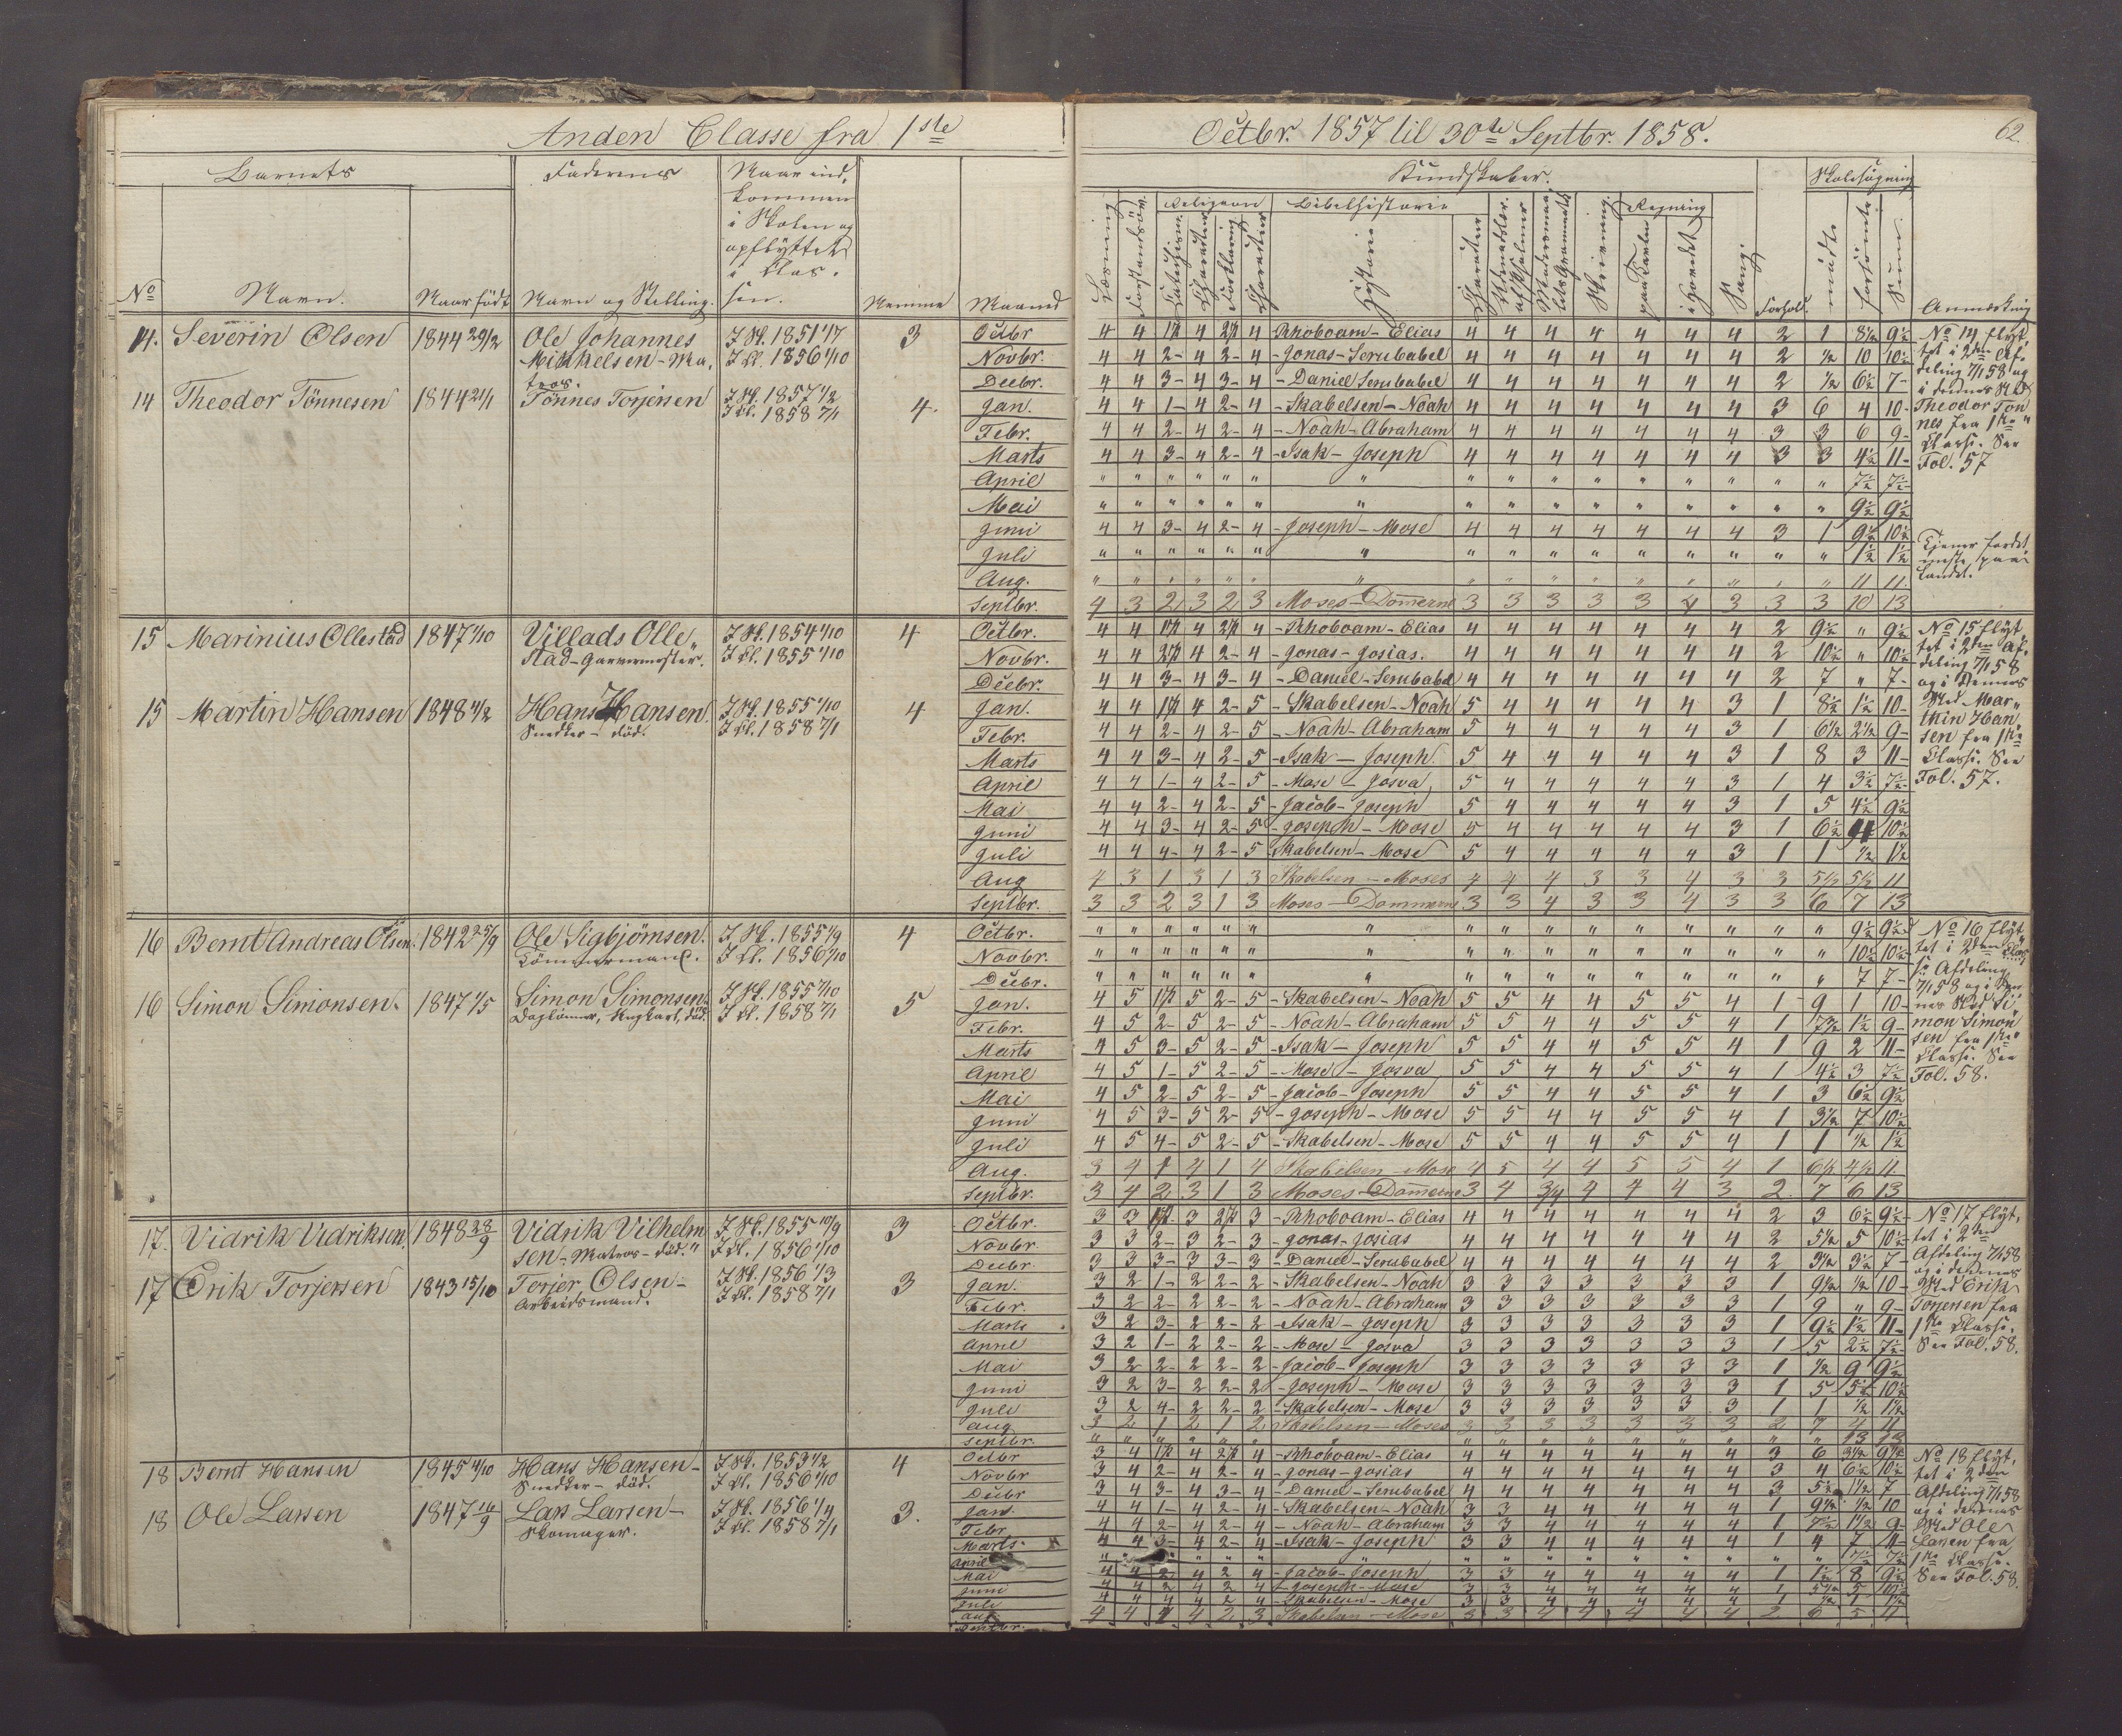 Anden Classe fra 1ste Octbr. 1857 til 30te Septbr. 1858.
62.
Barnets
Faderens
Naar ind,
kommen
i Skolen og
opflyttet
i Clas,
sen.
No
Navn.
Naar født
Navn og Stilling.
Nemme
Maaned
Kundskaber.
Skolesøgning
Religion
Bibelhistorie
Regning
Læsning
Forstandsöv.
Catechism.
Charakter
Forklaring
Charakter
Historie
Charakter
Skrivning
paa Tavle
i Hovedet
Sang
Forhold.
mødte
forsömte
Sum.
Anmærkning
14. Severin Olsen 1844 29/12 Ole Johannes Mikkelsen - Ma, tros. I Sk. 1851 1/7 I Cl. 1856 1/10 3
14 Theodor Tönnesen 1844 21/1 Tönnes Torjersen I Sk. 1857 1/2 I Cl. 1858 7/1 4.
Octbr 4 4 1½ 4 2½ 4 - Rhoboam - Elias 4 4 4 4 4 4 4 2 1 8½ 9½
Novbr. 4 4 2- 4 2- 4 - Jonas - Serubabel 4 4 4 4 4 4 4 2 ½ 10 10½
Decbr. 4 4 3- 4 3- 4 - Daniel Serubabel 4 4 4 4 4 4 4 2 ½ 6½ 7-
Jan. 4 4 1- 4 2- 4 - Skabelsen - Noah 4 4 4 4 4 4 4 3 6 4 10-
Febr. 4 4 2- 4 2- 4 - Noah - Abraham 4 4 4 4 4 4 4 3 3 6 9-
Marts 4 4 3- 4 2- 4 - Isak - Joseph 4 4 4 4 4 4 4 3 3 4½ 11-
April " " " " " " " " " " " " " " " " 7½ 7½
Mai " " " " " " " " " " " " " " " " 9½ 9½
Juni 4 4 3- 4 2- 4 - Joseph - Mose 4 4 4 4 4 4 4 3 1 9½ 10½
Juli " " " " " " " " " " " " " " " " 1½ 1½
Aug. " " " " " " " " " " " " " " " " 11 11
Septbr. 4 3 2 3 2 3 Moses - Dommerne 3 3 3 3 3 4 3 3 3 10 13
No 14 flyt,
tet i 2den Af,
deling 7/1 58 og
i dennes Sted
Theodor Ton
nes fra 1ste
Classe. See
Fol. 57
Tjener fordet
meste paa
Landet.
15 Marinius Ollestad 1847 1/10 Villads Olle, stad - Garvermester. I Sk. 1854 1/10 I Cl. 1855 1/10 4
15 Martin Hansen 1848 4/2 Hans Hansen Snedker - död. I Sk. 1855 1/10 I Cl. 1858 7/1 4
Octbr. 4 4 1½ 4 2½ 4 - Rhoboam - Elias 4 4 4 4 4 4 4 2 9½ " 9½
Novbr. 4 4 2½ 4 2- 4 - Jonas - Josias. 4 4 4 4 4 4 4 2 10½ " 10½
Decbr. 4 4 3- 4 3- 4 - Daniel - Serubabel 4 4 4 4 4 4 4 2 7 " 7-
Jan. 4 4 1½ 4 2- 5 - Skabelsen - Noah 5 4 4 4 4 4 3 1 8½ 1½ 10-
Febr. 4 4 2- 4 2- 5 - Noah - Abraham 5 4 4 4 4 4 3 1 6½ 2½ 9-
Marts 4 4 3- 4 2- 5 - Isak - Joseph. 5 4 4 4 4 4 3 1 8 3 11-
April 4 4 1- 4 2- 5 - Mose - Josva 5 4 4 4 4 4 3 1 4 3½ 7½
Mai 4 4 2- 4 2- 5 - Jacob - Joseph 5 4 4 4 4 4 3 1 5 4½ 9½
Juni 4 4 3- 4 2- 5 - Joseph - Mose 5 4 4 4 4 4 3 1 6½ 4 10½
Juli 4 4 4- 4 2- 5 - Skabelsen - Mose 5 4 4 4 4 4 3 1 1 ½ 1½
Aug 4 3 1 3 1 3 Skabelsen - Moses 4 4 4 3 3 4 3 3 5½ 5½ 11
Septbr. 3 3 2 3 1 3 Moses - Dommerne 3 3 4 3 3 4 3 3 6 7 13
No 15 flyt,
tet i 2den Af,
deling 7/1 58
og i dennes
Sted Mar,
thin Han
sen fra 1ste
Classe. See
Fol. 57.
16 Bernt Andreas Olsen. 1842 25/9 Ole Sigbjörnsen. Tömmermand. I Sk. 1855 1/9 I Cl. 1856 1/10 4
16 Simon Simonsen. 1847 1/5 Simon Simonsen. Daglönner, bugkast, död. I Sk. 1855 1/10 I Cl. 1858 7/1 5
Octbr. " " " " " " " " " " " " " " " " 9½ 9½
Novbr. " " " " " " " " " " " " " " " " 10½ 10½
Decbr. " " " " " " " " " " " " " " " " 7 7-
Jan. 4 5 1½ 5 2- 5 - Skabelsen - Noah 5 5 4 4 5 5 4 1 9 1 10-
Febr. 4 5 2- 5 2- 5 - Noah - Abraham 5 5 4 4 5 5 4 1 7½ 1½ 9-
Marts 4 5 3- 5 2- 5 - Isak - Joseph 5 5 4 4 5 5 4 1 9 2 11-
April 4 5 1- 5 2- 5 - Mose - Josva 5 5 4 4 5 5 4 1 4½ 3 7½
Mai 4 5 2- 5 2- 5 - Jacob - Joseph 5 5 4 4 5 5 4 1 3 6½ 9½
Juni 4 5 3- 5 2- 5 - Joseph - Mose 5 5 4 4 5 5 4 1 3½ 7 10½
Juli 4 5 4- 5 2- 5 - Skabelsen - Mose 5 5 4 4 5 5 4 1 1 ½ 1½
Aug. 3 4 1 4 1 4 Skabelsen - Mose 4 5 4 4 5 5 4 1 6½ 4½ 11
Septbr. 3 4 2 3 1 3 Moses - Dommerne 3 4 3/4 4 4 4 3 2 7 6 13
No 16 flyt,
tet i 2den Clas
se Afdeling
7/1 58 og i den
nes Sted Si
mon Simon
sen fra 1ste
Classe. See
Fol. 58.
17. Vidrik Vidriksen. 1848 28/9 Vidrik Vilhelm sen - Matros - död. I Sk. 1855 10/9 I Cl. 1856 1/10 3
17 Erik Torjersen 1843 15/10 Torjer Olsen - Arbeidsmand. I Sk. 1856 1/3 I Cl. 1858 7/1 3
Octbr. 3 3 1½ 3 2½ 3 - Rhoboam - Elias 4 4 4 4 4 4 4 2 3 6½ 9½
Novbr 3 3 2- 3 2- 3 - Jonas - Josias 4 4 4 4 4 4 4 2 5½ 5 10½
Decbr 3 3 3- 3 3- 3 - Daniel - Serubabel 4 4 4 4 4 4 4 2 3½ 3½ 7-
Jan. 3 2 1- 2 2- 2 - Skabelsen - Noah 3 3 3 3 3 3 3 1 9½ ½ 10-
Febr. 3 2 2- 2 2- 2 - Noah - Abraham 3 3 3 3 3 3 3 1 9 " 9-
Marts 3 2 3- 2 2- 2 - Isak - Joseph 3 3 3 3 3 3 3 1 9½ 1½ 11-
April 3 2 1- 2 2- 2 - Mose - Josva 3 3 3 3 3 3 3 1 5 2½ 7½
Mai 3 2 2- 2 2- 2 - Jacob - Joseph 3 3 3 3 3 3 3 1 ½ 9 9½
Juni 3 2 3- 2 2- 2 - Joseph - Mose 3 3 3 3 3 3 3 1 5 5½ 10½
Juli 3 2 4- 2 2- 2 - Skabelsen - Mose 3 3 3 3 3 3 3 1 1 ½ 1½
Aug 3 2 1 2 1 2 Skabelsen - Moses 3 3 3 3 3 3 3 2 7 4 11
Septbr. " " " " " " " " " " " " " " " " 13 13
No 17 flyt,
tet i 2den
Afdeling 7/1 58
og i dennes
Sted Erik
Torjersen fra
1ste Classe.
See Fol. 58.
18 Bernt Hansen 1845 4/10 Hans Hansen - Snedker - död. I Sk. 1853 1/2 I Cl. 1856 1/10 4
18 Ole Larsen 1847 16/9 Lars Larsen - Skomager. I Sk. 1856 1/4 I Cl. 1858 7/1 3.
Octbr 3 4 1½ 4 2½ 4 - Rhoboam - Elias 4 4 4 4 4 4 4 3 6 3½ 9½
Novbr 3 4 2- 4 2- 4 - Jonas - Josias 4 4 4 4 4 4 4 3 4 6½ 10½
Decbr 3 4 3- 4 3- 4 - Daniel - Serubabel 4 4 4 4 4 4 4 3 5½ 1½ 7
Jan. 4 4 1- 4 2- 4 - Skabelsen - Noah 3 3 4 4 4 4 4 1 9½ ½ 10
Febr 4 4 2- 4 2- 4 - Noah - Abraham 3 3 4 4 4 4 4 1 7½ 1½ 9-
Marts 4 4 3- 4 2- 4 - Isak - Joseph 3 3 4 4 4 4 4 1 4 7 11-
April " " " " " " " " " " " " " " 7½ 7½
Mai 4 4 2 4 2 4 - Jacob - Joseph 3 3 4 4 4 4 4 1 1½ 8 9½
Juni 4 4 2 4 2 4 - Joseph - Mose 3 3 4 4 4 4 4 1 5½ 5 10½
Juli 4 4 4 4 2 4 - Skabelsen - Mose 3 3 4 4 4 4 4 1 ½ 1 1½
Aug. 4 4 1 4 2 3 Skabelsen - Mose 3 3 4 4 4 4 4 2 6 5 11
Septbr.
No 18 flyt,
tet i 2den
Afdeling 7/1 58
og i dennes
Sted Ole
Larsen fra
1ste Classe.
See Fol. 58.